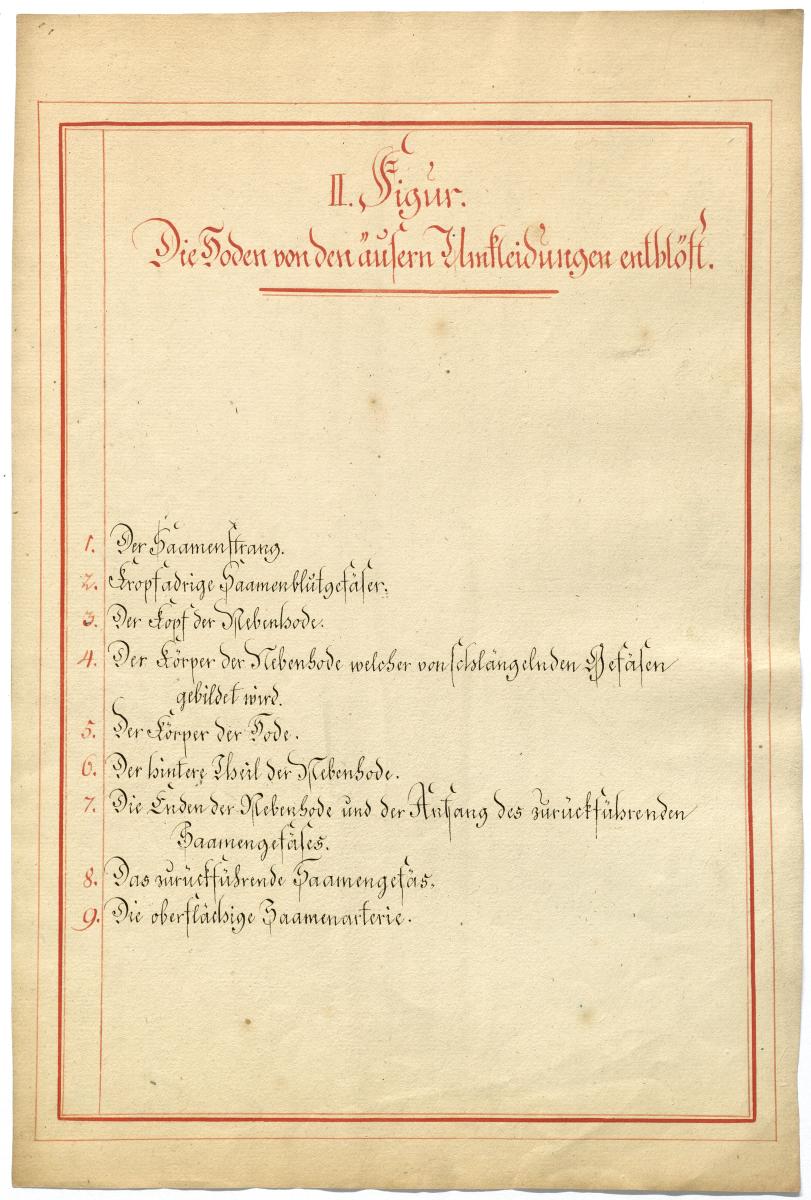 II. Figur.
Die Hoden von den äusern Umkleidungen entblöst.
1. Der Saamenstrang.
2. Kropfadrige Saamenblutgefäser.
3. Der Kopf der Nebenhode.
4. Der Körper der Nebenhode welcher von schlängelnden Gefäsen
gebildet wird.
5. Der Körper der Hode.
6. Der hintere Theil der Nebenhode.
7. Die Enden der Nebenhode und der Anfang des zurückführenden
Saamengefäses.
8. Das zurückführende Saamengefäs.
9. Die oberflächige Saamenarterie.